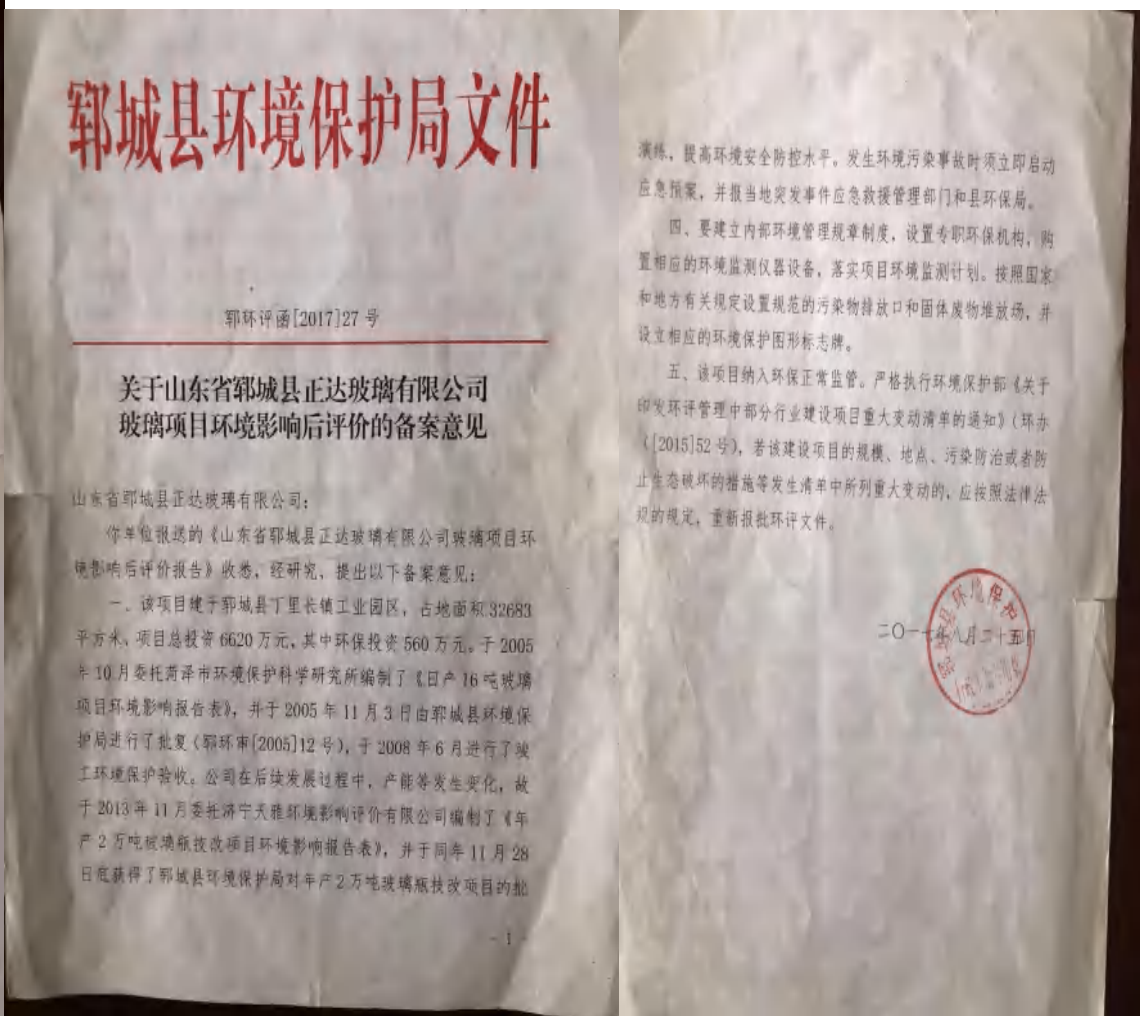 郓城县环境保护局文件
郓环评函[2017]27号
关于山东省郓城县正达玻璃有限公司
玻璃项目环境影响后评价的备案意见
山东省郓城县正达玻璃有限公司：
你单位报送的《山东省郓城县正达玻璃有限公司玻璃项目环
境影响后评价报告》收悉，经研究，提出以下备案意见：
一、该项目建于郓城县丁里长镇工业园区，占地面积32683
平方米，项目总投资6620万元，其中环保投资560万元。于2005
年10月委托菏泽市环境保护科学研究所编制了《日产16吨玻璃
项目环境影响报告表》，并于2005年11月3日由郓城县环境保
护局进行了批复（郓环审[2005]12号），于2008年6月进行了竣
工环境保护验收。公司在后续发展过程中，产能等发生变化，故
于2013年11月委托济宁天雅环境影响评价有限公司编制了《年
产2万吨玻璃瓶技改项目环境影响报告表》，并于同年11月28
日庭获得了郓城县环境保护局对年产2万吨玻璃瓶技改项目的批
- 1 -
演练，提高环境安全防控水平。发生环境污染事故时须立即启动
应急预案，并报当地突发事件应急救援管理部门和县环保局。
四、要建立内部环境管理规章制度，设置专职环保机构，购
置相应的环境监测仪器设备，落实项目环境监测计划。按照国家
和地方有关规定设置规范的污染物排放口和固体废物堆放场，并
设立相应的环境保护图形标志牌。
五、该项目纳入环保正常监管。严格执行环境保护部《关于
印发环评管理中部分行业建设项目重大变动清单的通知》（环办
（[2015]52号），若该建设项目的规模、地点、污染防治或者防
止生态破坏的措施等发生清单中所列重大变动的，应按照法律法
规的规定，重新报批环评文件。
二〇一七年八月二十五日
郓城县环境保护